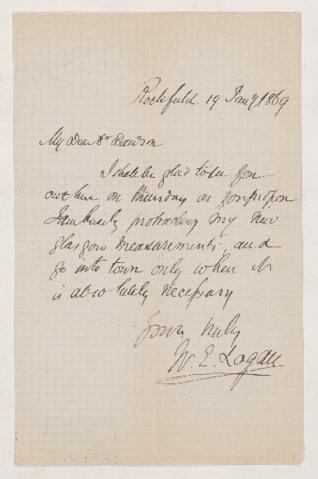 Rockfield 19 Jany 1869
My Dear Dr Dawson
I shall be glad to see you
out here on Thursday as you propose
I am busily protracting my New
Glasgow measurements, and
go into town only when it
is absolutely necessary
Yours truly
W. E. Logan